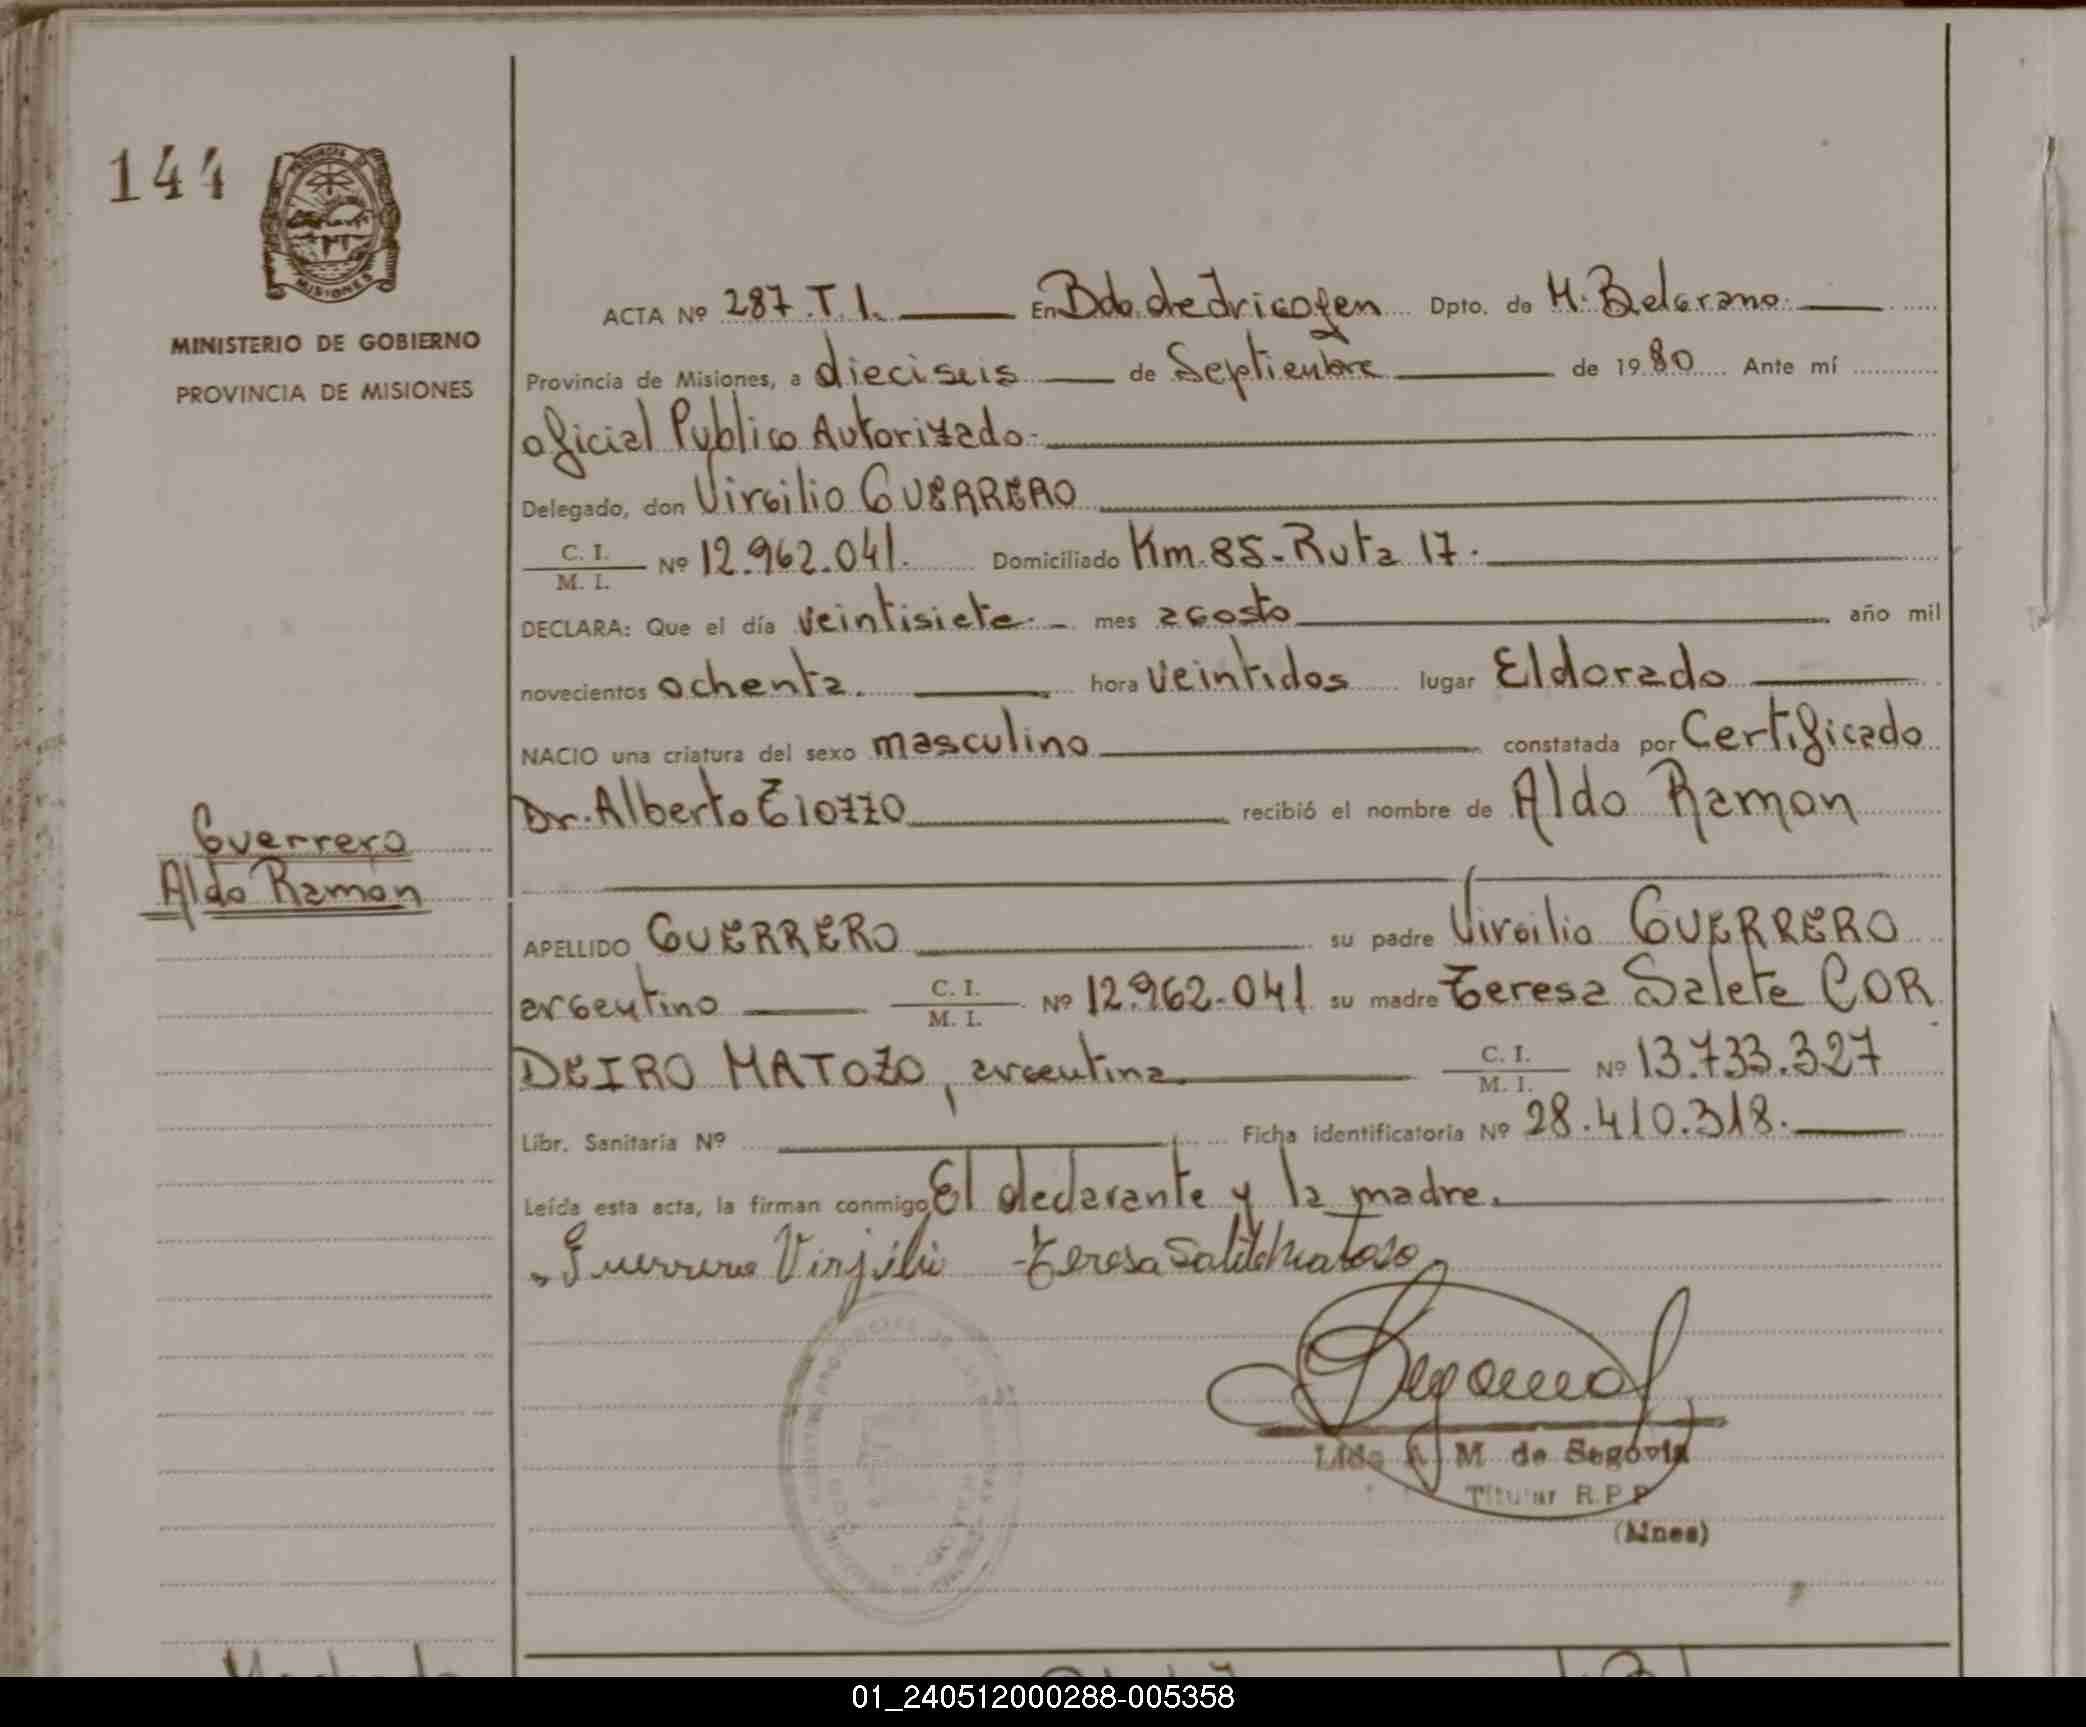 144
MISIONES
MINISTERIO DE GOBIERNO
PROVINCIA DE MISIONES
ACTA Nº 287.T.I. En Bdo. de Irigoyen Dpto. de M. Belgrano.
Provincia de Misiones, a dieciseis de Septiembre de 1980 Ante mí
oficial Publico Autorizado.
Delegado, don Virgilio GUERRERO
C. I.
M. I. Nº 12.962.041. Domiciliado Km.85-Ruta 17.
DECLARA: Que el día veintisiete mes agosto año mil
novecientos ochenta. hora veintidos lugar Eldorado
NACIO una criatura del sexo masculino constatada por Certificado
Dr. Alberto Tiozzo recibió el nombre de Aldo Ramon
Guerrero
Aldo Ramon
APELLIDO GUERRERO su padre Virgilio GUERRERO
argentino C. I. M. I. Nº 12.962.041 su madre Teresa Salete COR
DEIRO MATOZO, argentina. C. I. M. I. Nº 13.733.327
Libr. Sanitaria Nº Ficha identificatoria Nº 28.410.318.
Leída esta acta, la firman conmigo El declarante y la madre.
Guerrero Virjilio Teresa Salete Matoso
M. de Segovia
Titular R.P.P
(Mnes)
01_240512000288-005358